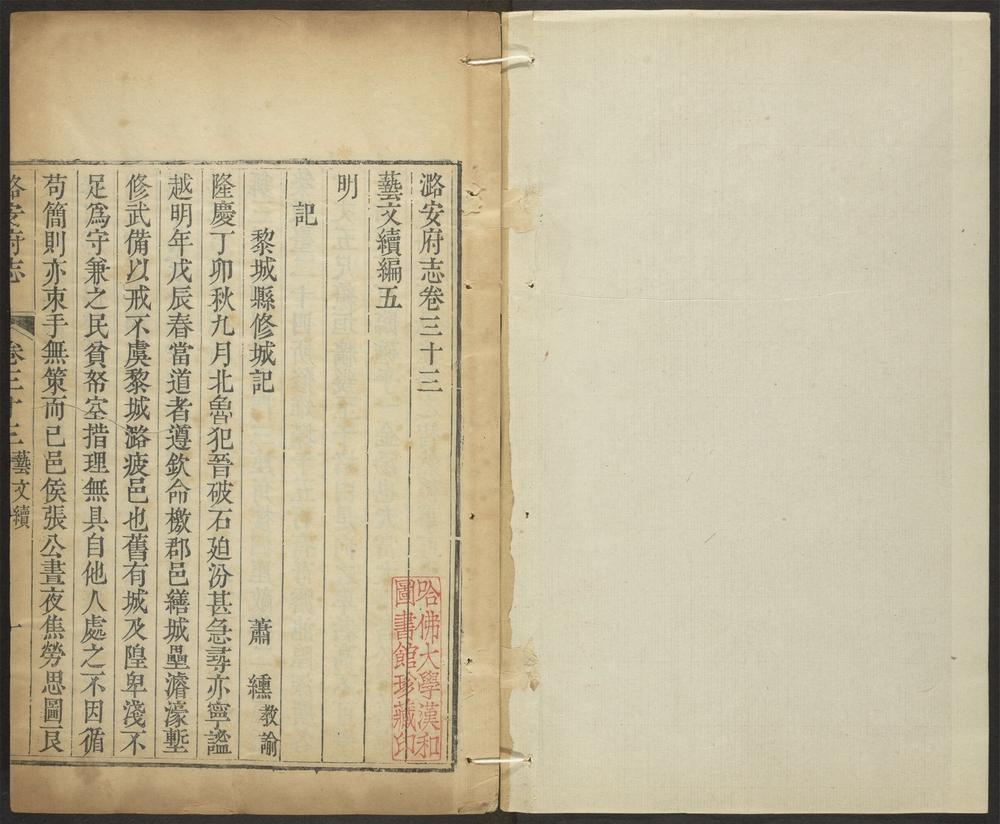 潞安府志卷三十三
藝文續編五
明
記
黎城縣修城記
蕭 纁教諭
隆慶丁卯秋九月北魯犯晉破石廹汾甚急尋亦寧謐
越明年戊辰春當道者遵欽命檄郡邑繕城壘濬濠塹
修武備以戒不虞黎城潞疲邑也舊有城及隍卑淺不
足為守兼之民貧帑空措理無具自他人處之不因循
苟簡則亦束手無策而已邑侯張公晝夜焦勞思圖良
潞安府志
卷三十三 藝文續 一
哈佛大學漢和
圖書館珍藏印